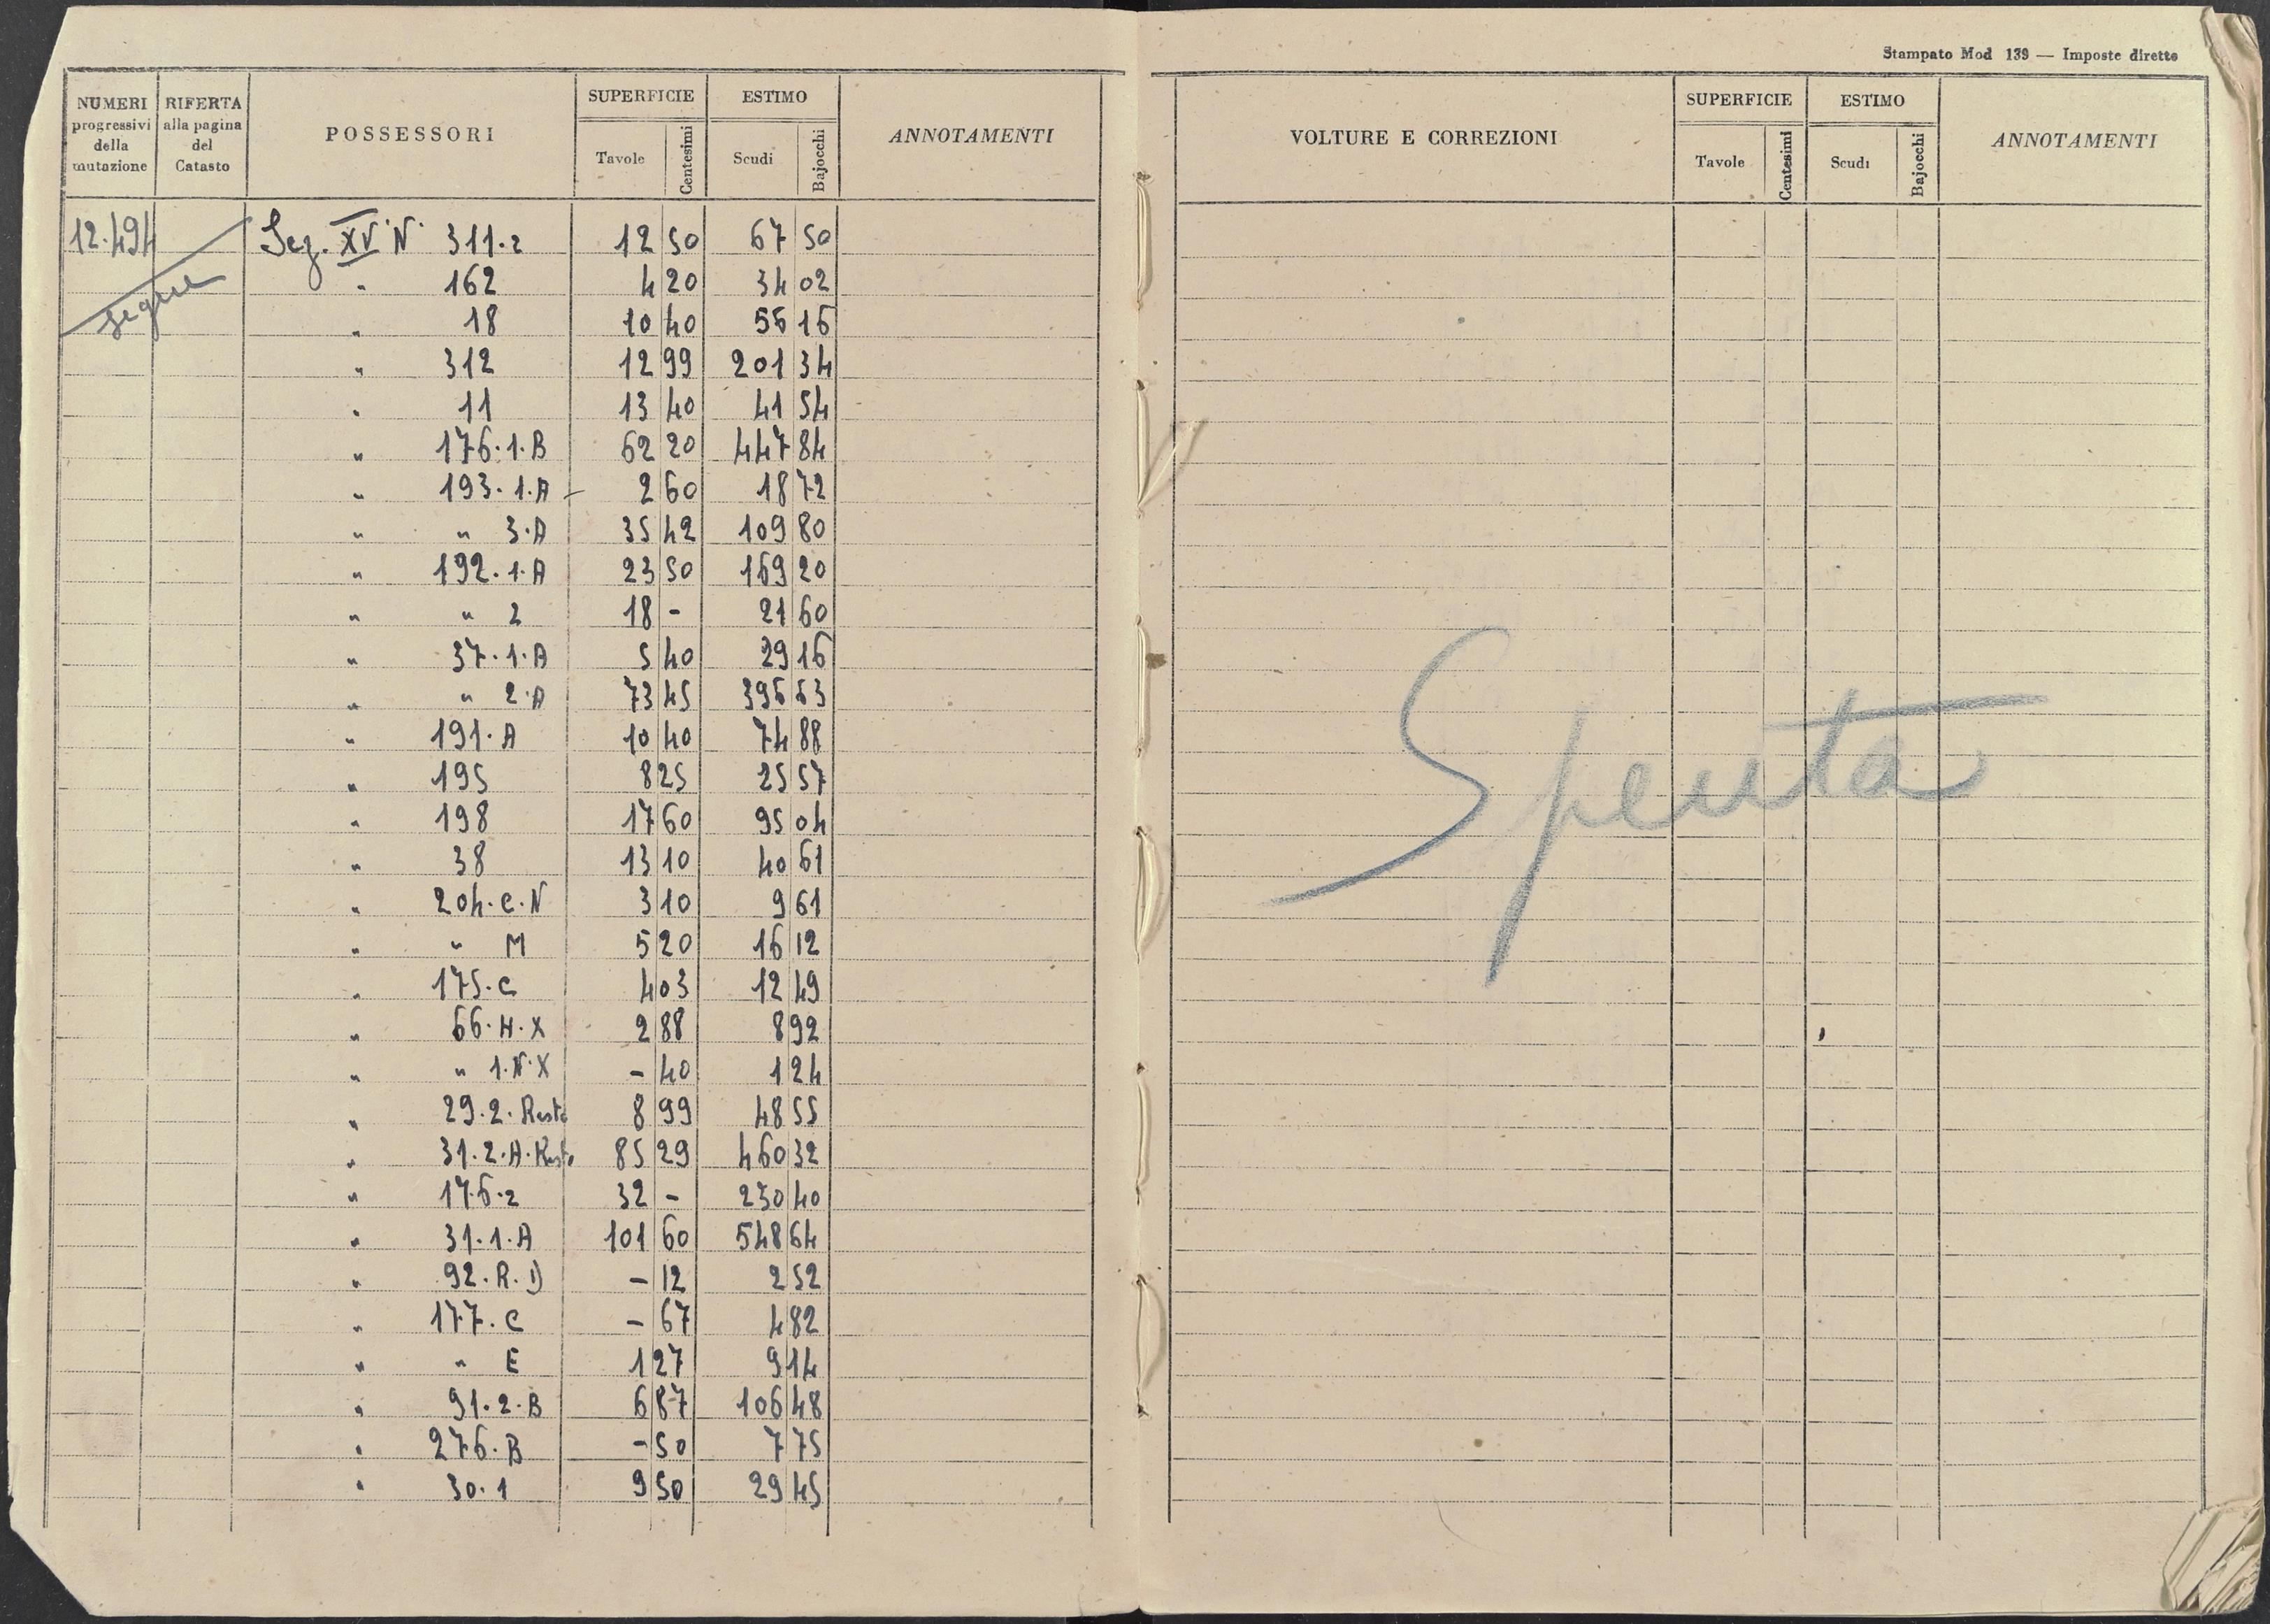 Stampato Mod 139 — Imposte dirette
NUMERI progressivi della mutazione RIFERTA alla pagina del Catasto POSSESSORI SUPERFICIE Tavole Centesimi ESTIMO Scudi Bajocchi ANNOTAMENTI
12.494 Sez. XV N. 311.2 12 50 67 50
segue
" 162 4 20 34 02
" 18 10 40 56 16
" 312 12 99 201 34
" 11 13 40 41 54
" 176.1.B 62 20 447 84
" 193.1.A 2 60 18 72
" " 3.A 35 42 109 80
" 192.1.A 23 50 169 20
" " 2 18 - 21 60
" 37.1.A 5 40 29 16
" " 2.A 73 45 396 63
" 191.A 10 40 74 88
" 195 8 25 25 57
" 198 17 60 95 04
" 38 13 10 40 61
" 204.C.N 3 10 9 61
" " M 5 20 16 12
" 175.C 4 03 12 49
" 66.H.X 2 88 8 92
" " 1.N.X - 40 1 24
" 29.2.Resto 8 99 48 55
" 31.2.A.Resto 85 29 460 32
" 176.2 32 - 230 40
" 31.1.A 101 60 548 64
" 92.R.D - 12 2 52
" 177.C - 67 4 82
" " E 1 27 9 14
" 91.2.B 6 87 106 48
" 276.B - 50 7 75
" 30.1 9 50 29 45
VOLTURE E CORREZIONI SUPERFICIE Tavole Centesimi ESTIMO Scudi Bajocchi ANNOTAMENTI
Spenta